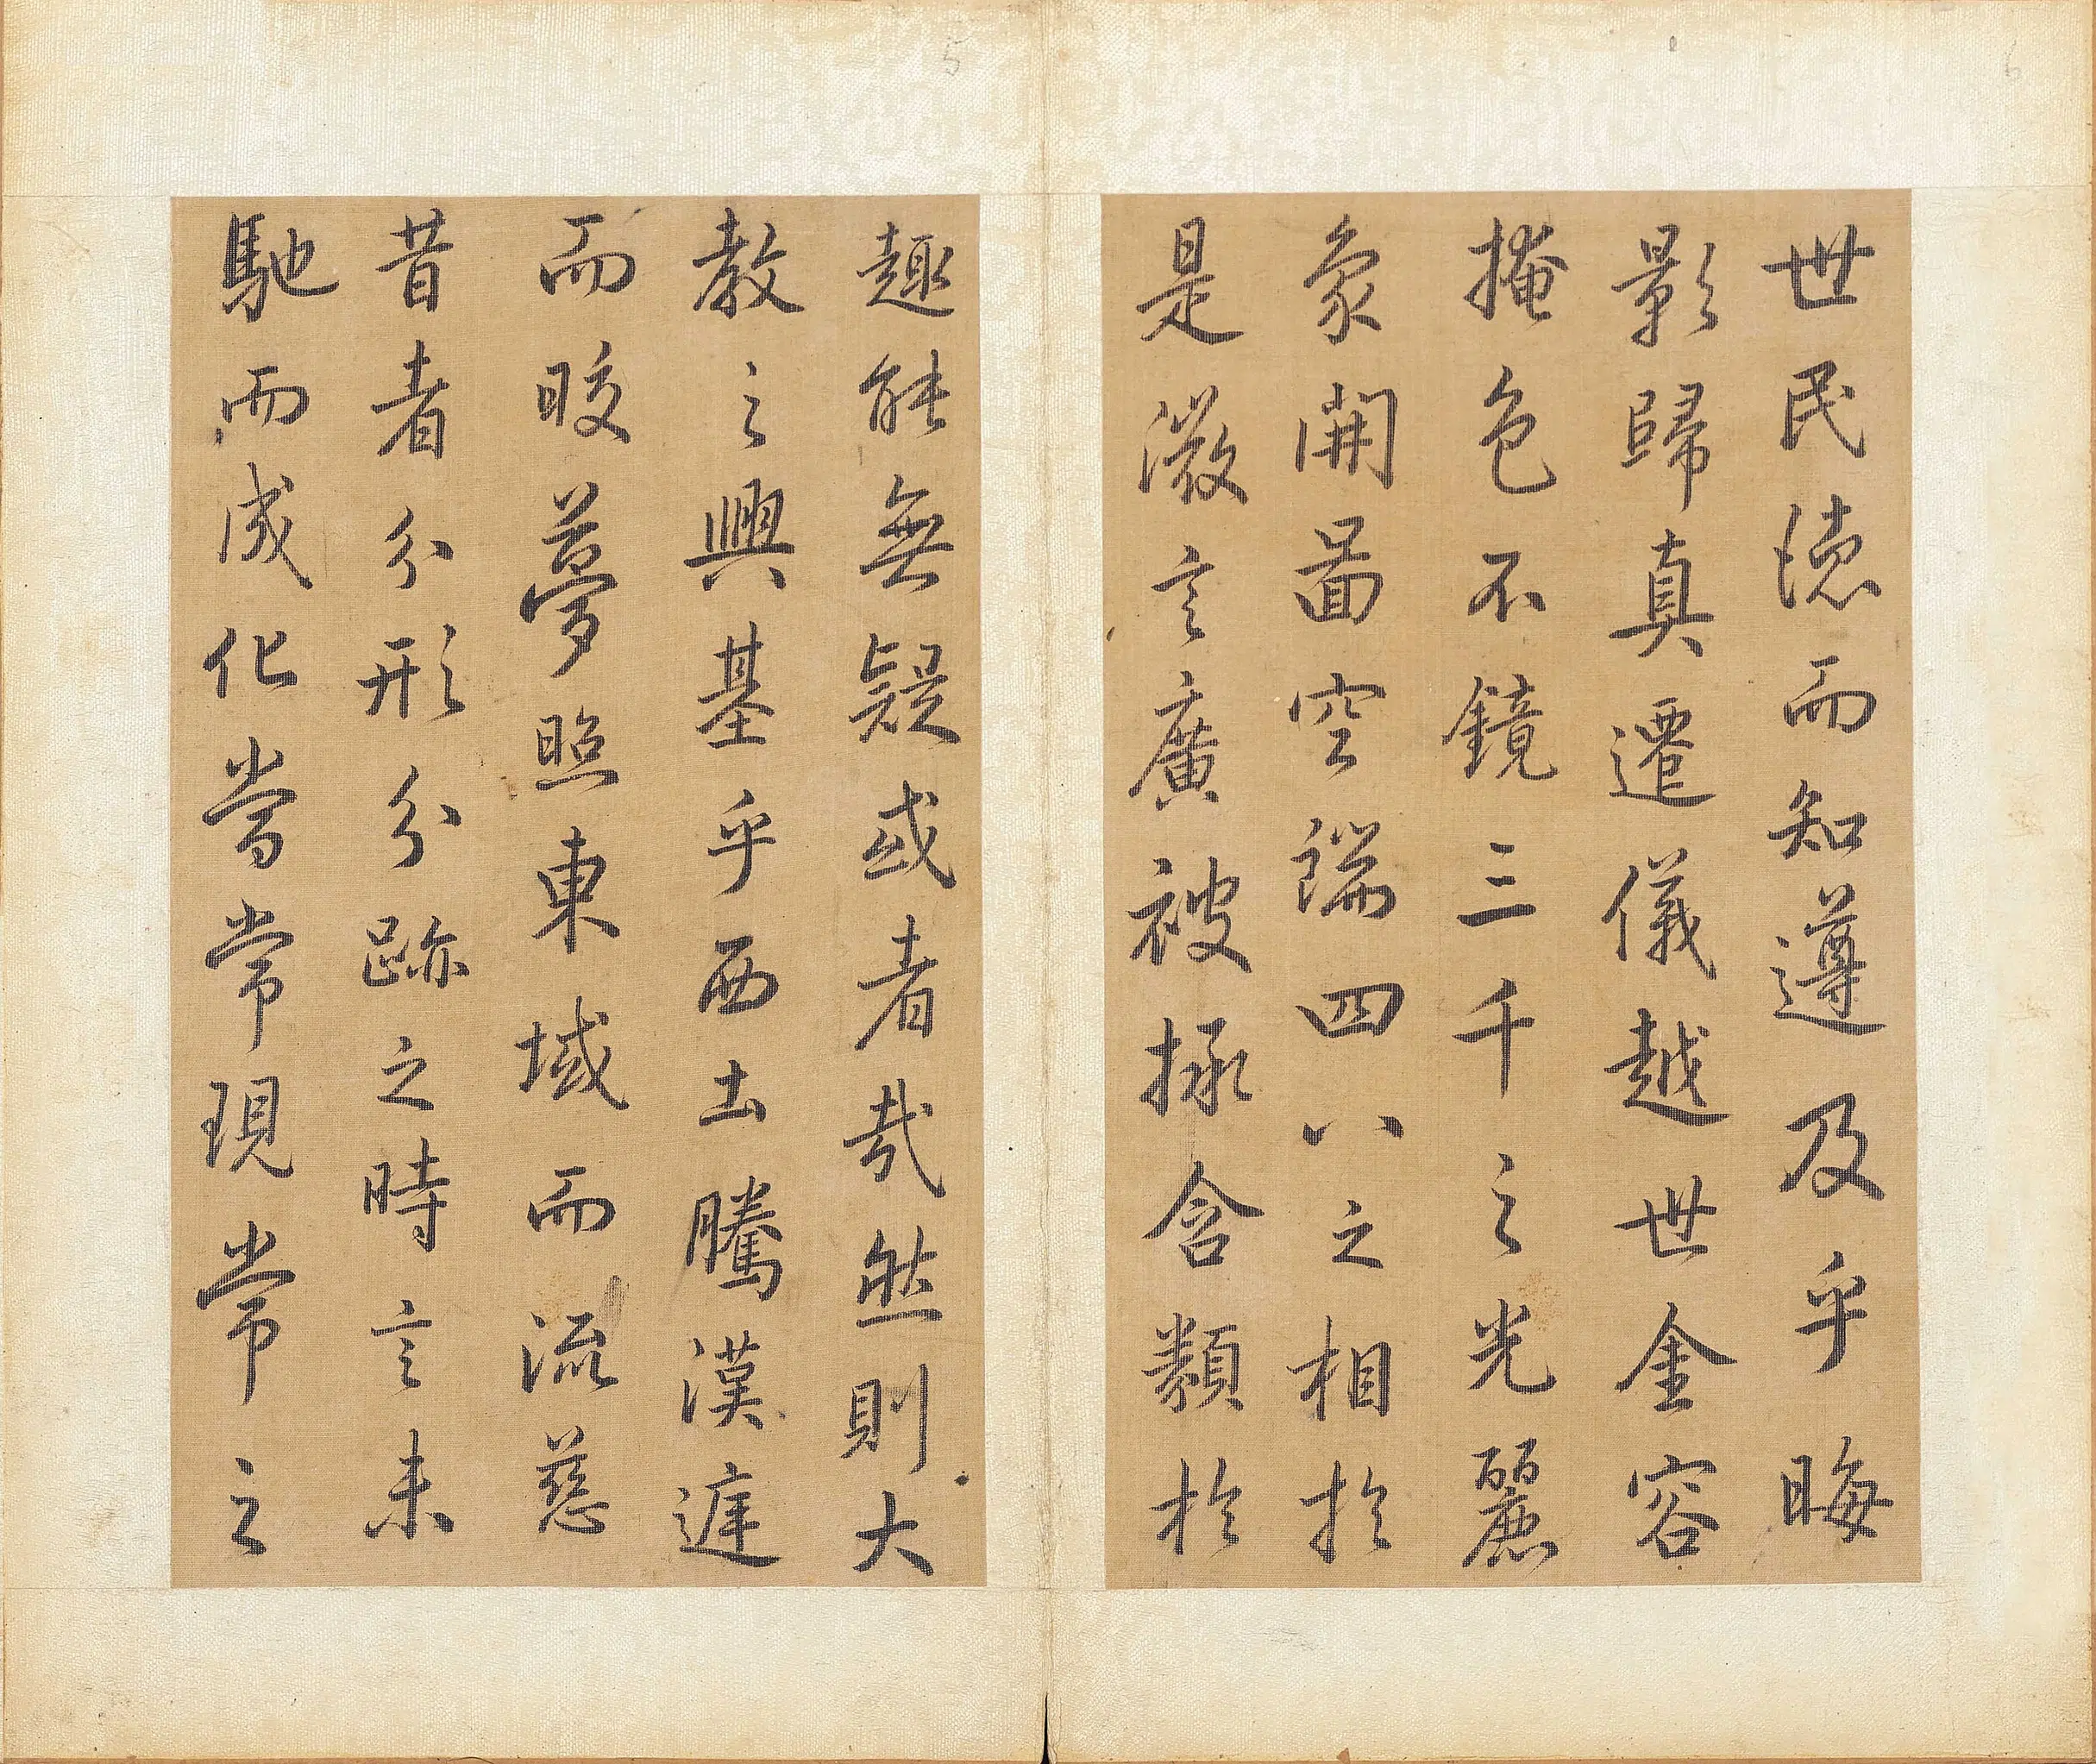 世民德而知遵及乎晦
影歸真遷儀越世金容
掩色不鏡三千之光麗
象開圖空端四八之相於
是微言廣被拯含類於
趣能無疑或者哉然則大
教之興基乎西土騰漢庭
而皎夢照東域而流慈
昔者分形分跡之時言未
馳而成化當常現常之
5
6